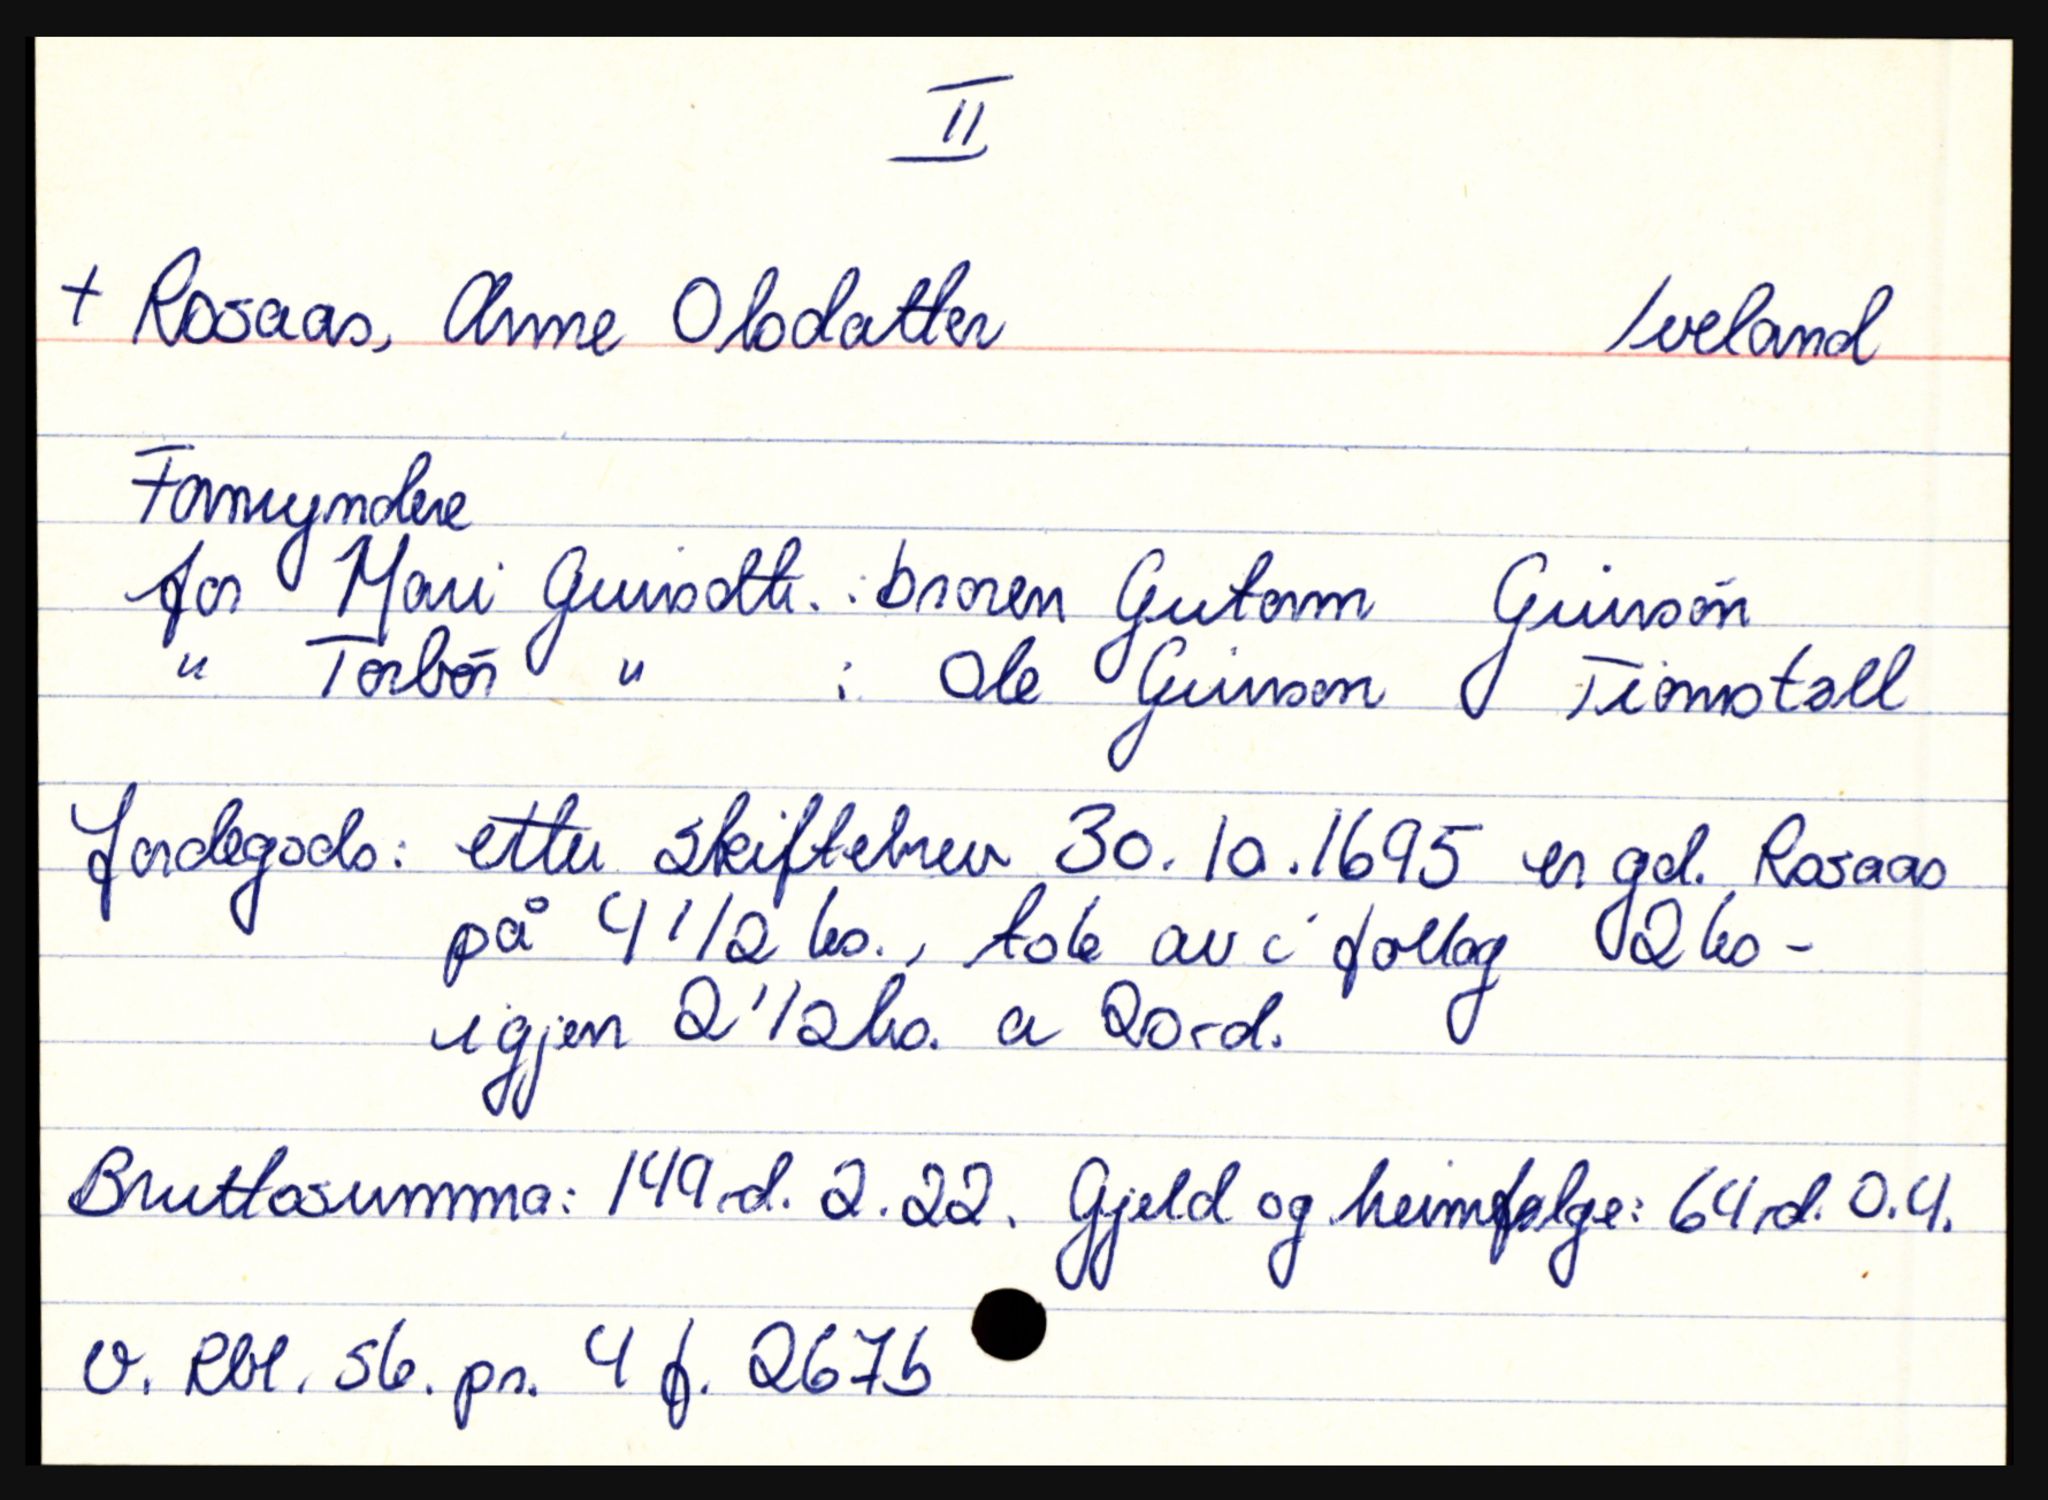 II
+ Rosaas, Anne Olsdatter Iveland
Formyndere
for Mari Guivsdtr. : broren Gutorm Guivsøn
" Torbør " : Ole Guivson Tiomstøll
Jordegods: etter skiftebrev 30.10.1695 er gd. Rosaas
på 4 1/2 hs., tok av i follog 2 hs -
igjen 2 1/2 hs. a 20 rd.
Bruttosumma: 149 rd. 2.22. Gjeld og heimfølge: 64 rd. 0.4.
v. Rbl. sk. pr. 4 f. 267b